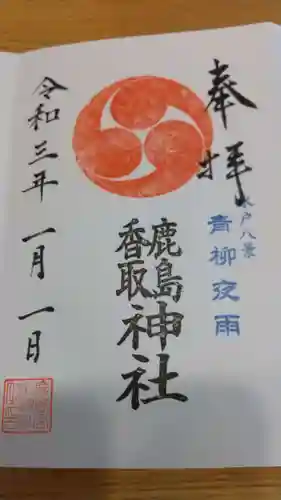 奉拝
水戸八景
青柳夜雨
鹿島
香取
神社
令和三年 一月 一日